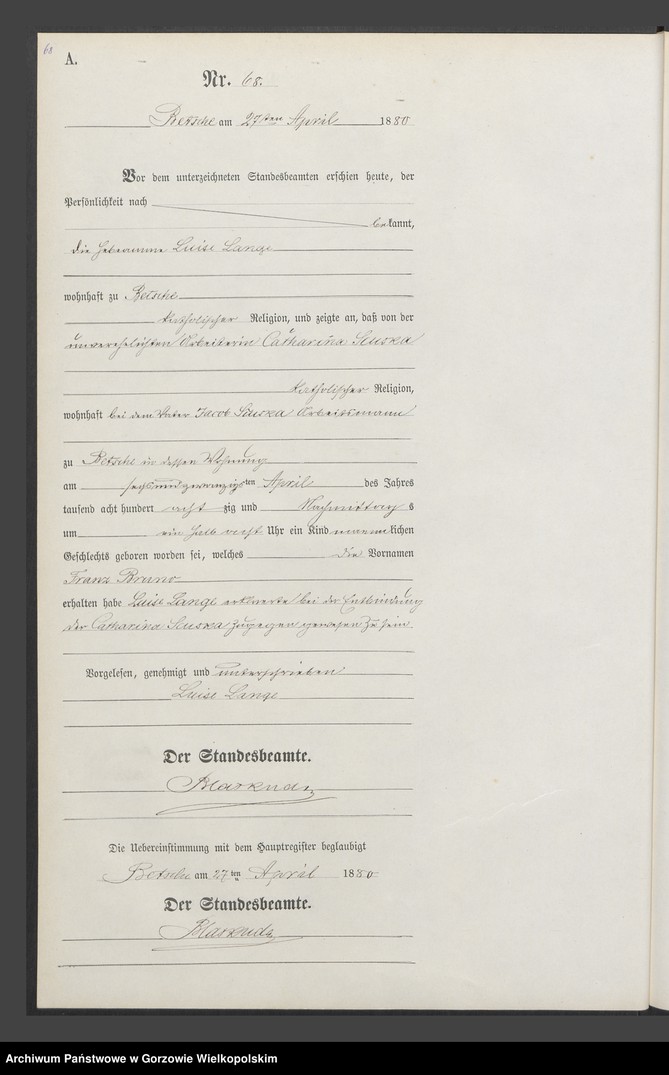 68
A.
Nr. 68.
Betsche am 27ten April 1880
Vor dem unterzeichneten Standesbeamten erschien heute, der
Persönlichkeit nach
bekannt,
die Hebeamme Luise Lange
wohnhaft zu Betsche
katholischer Religion, und zeigte an, daß von der
unverehelichten Arbeiterin Catharina
katholischer Religion,
wohnhaft bei dem Vater Jacob Arbeitsmann
zu Betsche in dessen Wohnung
am sechsundzwanzigsten April des Jahres
tausend acht hundert achtzig und Nachmittags
um ein halb acht Uhr ein Kind männlichen
Geschlechts geboren worden sei, welches die Vornamen
Franz Bruno
erhalten habe Luise Lange erklaerte bei der Entbindung
der Catharina zugegen gewesen zu sein
Vorgelesen, genehmigt und unterschrieben
Luise Lange
Der Standesbeamte.
Die Uebereinstimmung mit dem Hauptregister beglaubigt
Betsche am 27ten April 1880
Der Standesbeamte.
Archiwum Państwowe w Gorzowie Wielkopolskim